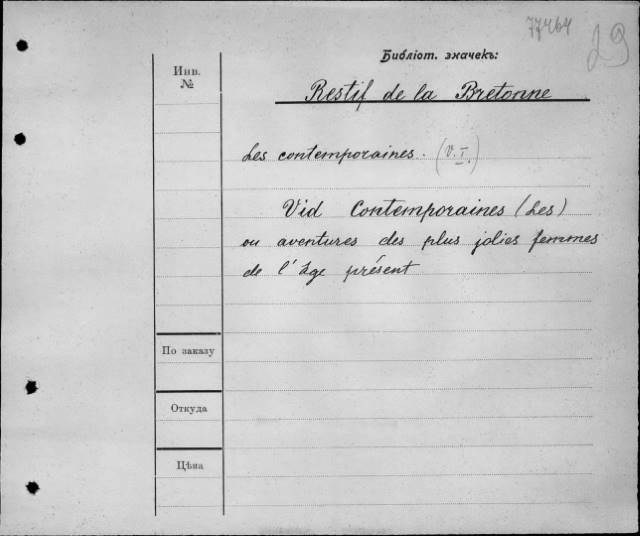 77464
29
Библіот. значекъ:
Инв.
№
Restif de la Bretonne
Les contemporaines. (V. I.)
Vid Contemporaines (Les)
ou aventures des plus jolies femmes
de l'âge présent
По заказу
Откуда
Цѣна